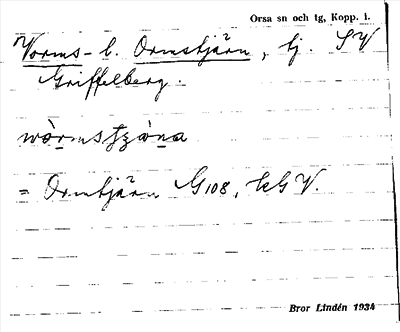 Orsa sn och tg, Kopp. l.
Vorms- l. Ormstjärn, tj. SV
Griffelberg.
wòrmstjä̀na
= Ormtjärn G108, kG V.
Bror Lindén 1934